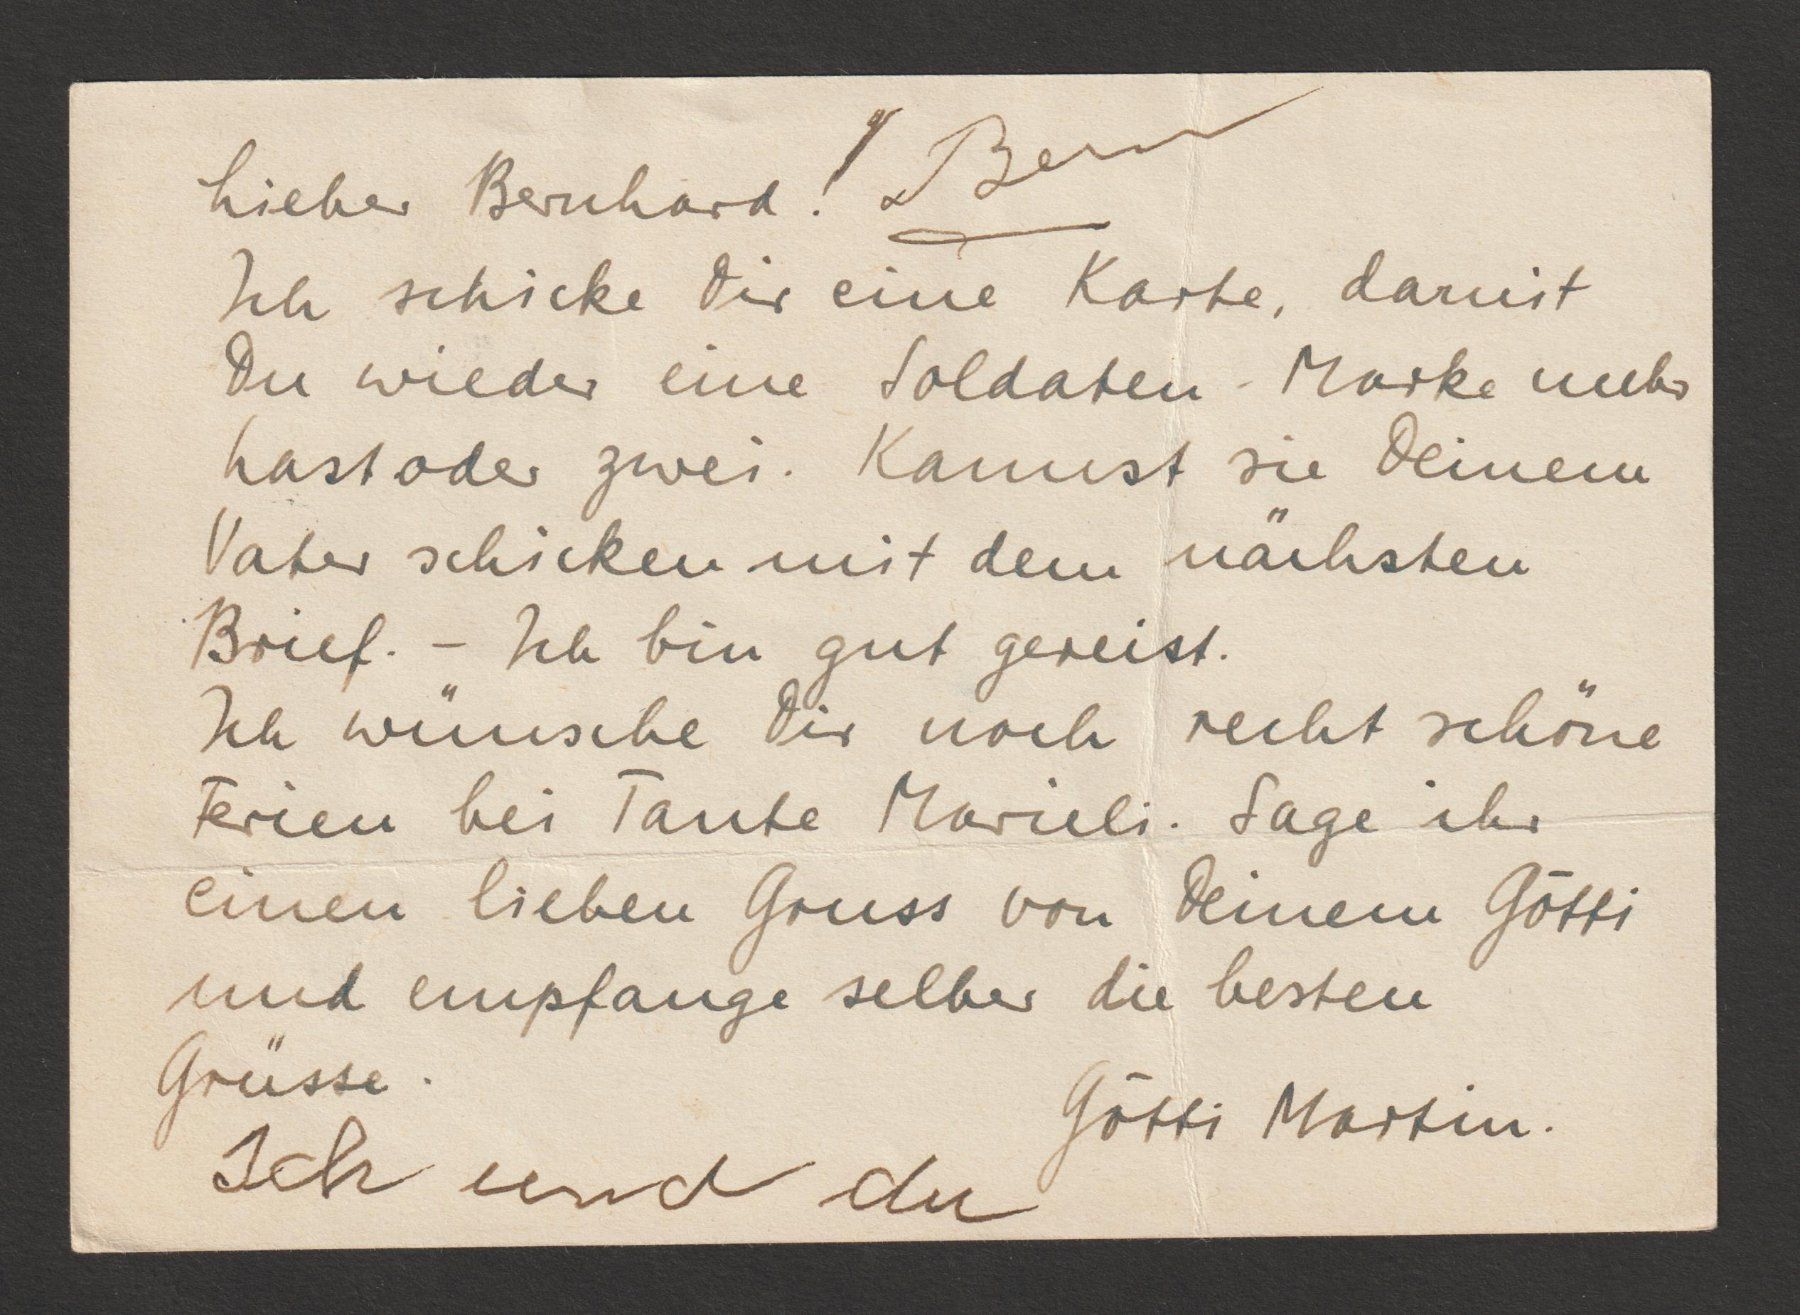 Lieber Bernhard! Bern
Ich schicke Dir eine Karte, damit
Du wieder eine Soldaten-Marke mehr
hast oder zwei. Kannst sie Deinem
Vater schicken mit dem nächsten
Brief. – Ich bin gut gereist.
Ich wünsche Dir noch recht schöne
Ferien bei Tante Marieli. Sage ihr
einen lieben Gruss von Deinem Götti
und empfange selber die besten
Grüsse.
Götti Martin.
Ich und du